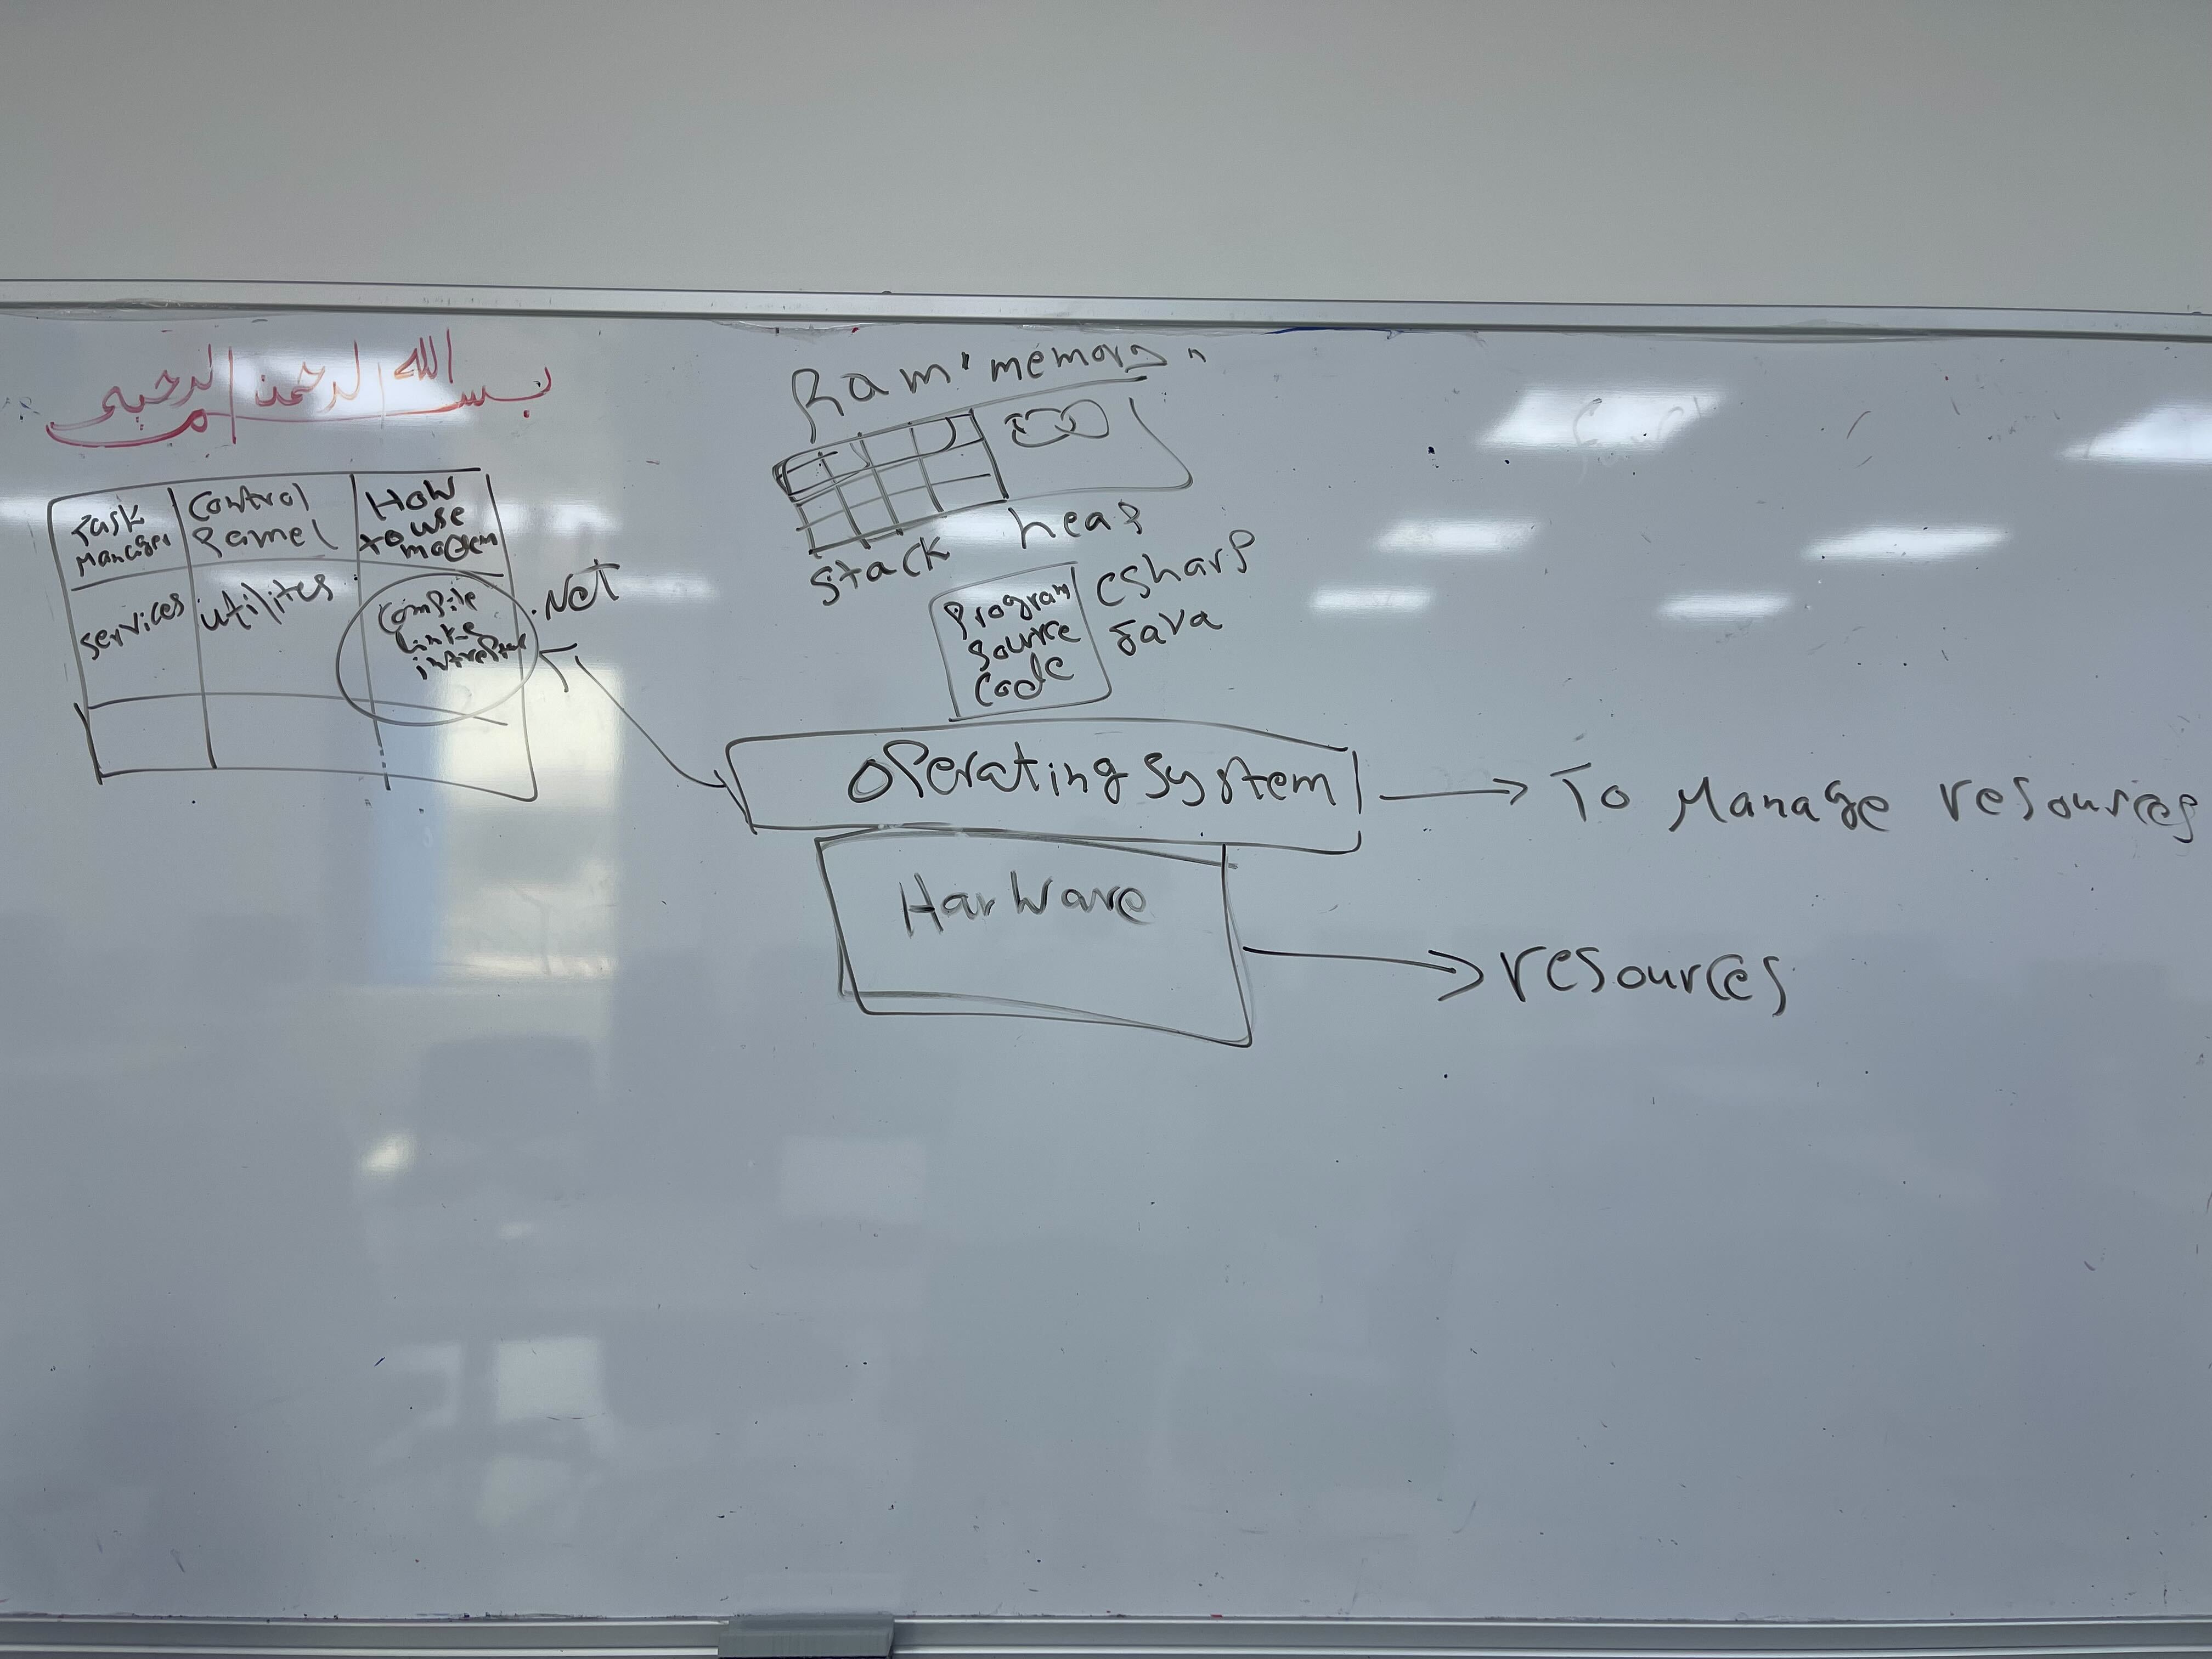 بسم الله الرحمن الرحيم
Task
Manager
Control
Pamel
How
to use
modem
services
utilites
Compile
Linke
.Net
Ram "memory"
stack
heap
Program
source
code
csharp
Java
operating system
To Manage resources
HarWare
resources